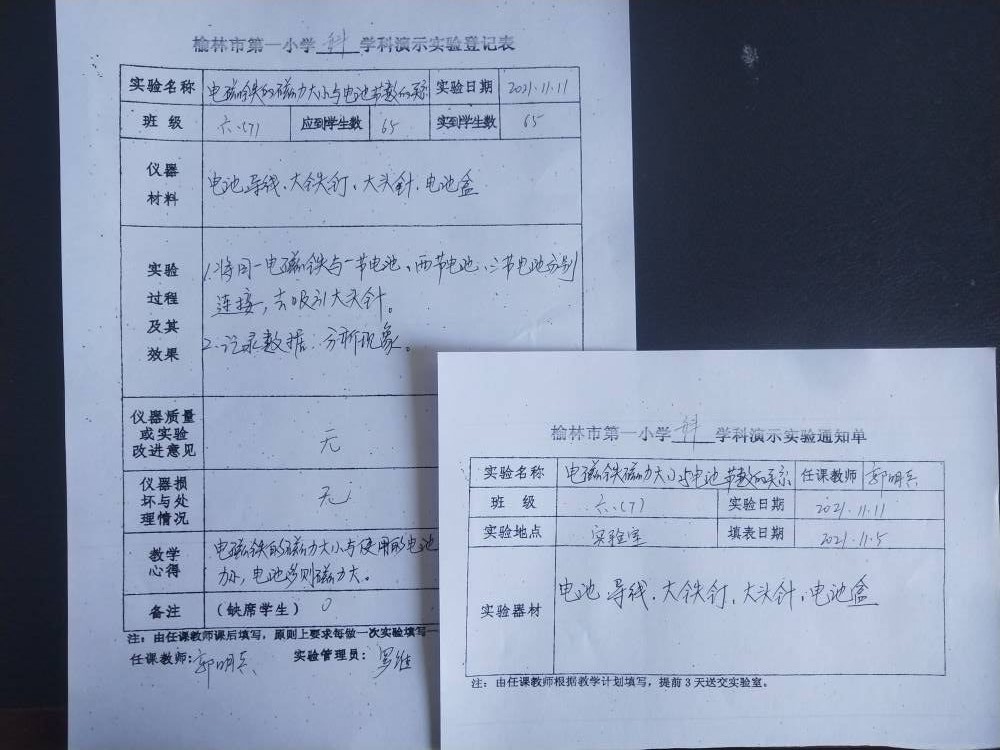 榆林市第一小学 科 学科演示实验登记表
实验名称 电磁铁的磁力大小与电池节数的关系 实验日期 2021.11.11
班 级 六.(7) 应到学生数 65 实到学生数 65
仪器
材料
电池.导线.大铁钉、大头针.电池盒
实验
过程
及其
效果
1.将同一电磁铁与一节电池、两节电池、三节电池分别
连接,去吸引大头针。
2.记录数据.分析现象。
仪器质量
或实验
改进意见
无
仪器损
坏与处
理情况
无
教学
心得
电磁铁的磁力大小与使用的电池
电池多则磁力大。
备注 (缺席学生) 0
注:由任课教师课后填写,原则上要求每做一次实验填写一
任课教师:郭明兵 实验管理员:罗维
榆林市第一小学 科 学科演示实验通知单
实验名称 电磁铁磁力大小与电池节数的关系 任课教师 郭明兵
班 级 六.(7) 实验日期 2021.11.11
实验地点 实验室 填表日期 2021.11.5
实验器材 电池.导线.大铁钉、大头针、电池盒
注:由任课教师根据教学计划填写,提前3天送交实验室。